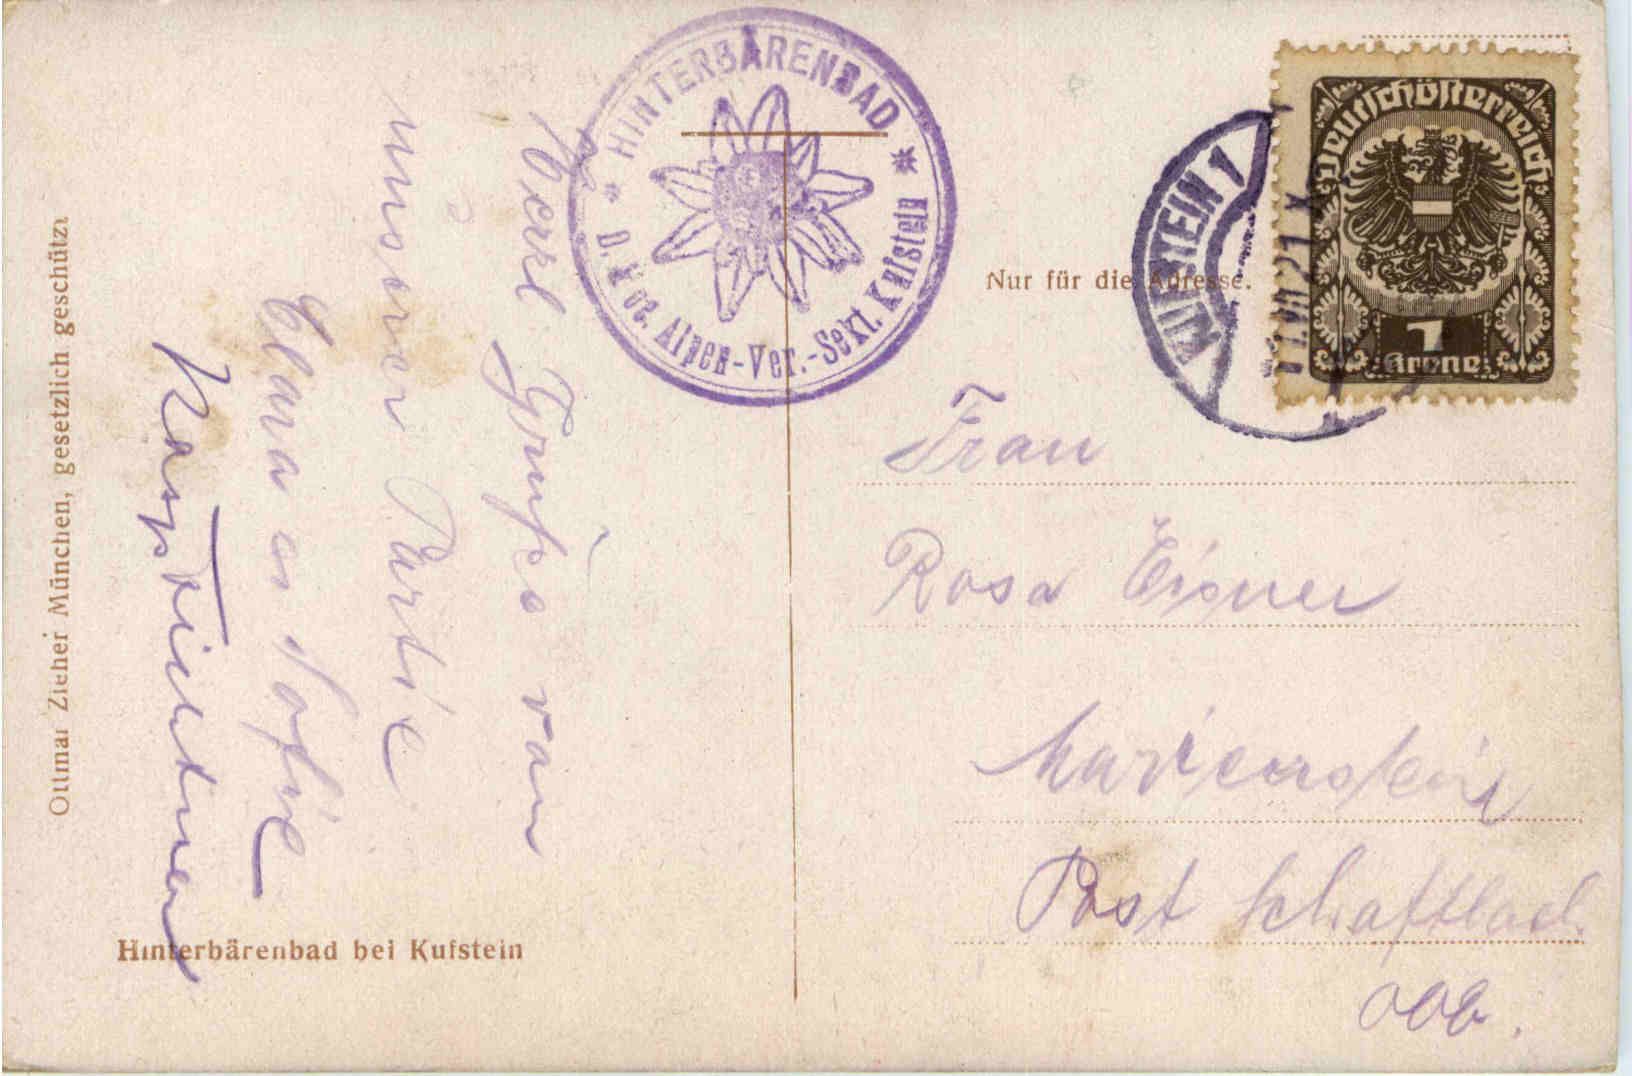 HINTERBÄRENBAD
D. u. Oe. Alpen-Ver.-Sekt. Kufstein
Deutschösterreich
1
Krone
KUFSTEIN 1
21
Nur für die Adresse.
Herzl Grüße von
unserer Partie
Clara Sofie
Frau
Rosa Eisner
Marienstein
Post Schaftlach
Obb.
Hinterbärenbad bei Kufstein
Ottmar Zieher München, gesetzlich geschützt